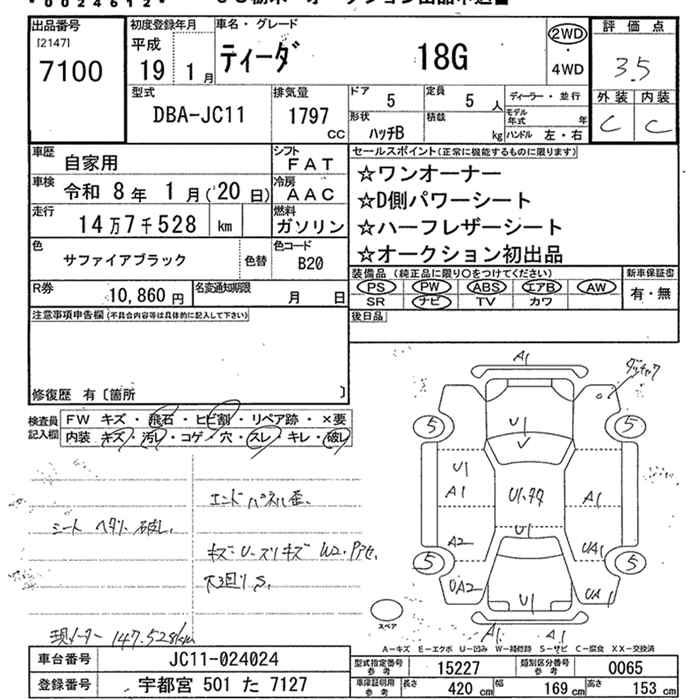 *0024612*
出品番号
[2147]
7100
初度登録年月
平成
19年 1月
車名・グレード
ティーダ 18G
2WD
・
4WD
評価点
3.5
外装 内装
C C
型式
DBA-JC11
排気量
1797 CC
ドア
5
定員
5 人
形状
ハッチB
積載
kg
ディーラー・並行
モデル年式 年
ハンドル 左・右
車歴
自家用
シフト
FAT
車検 令和 8年 1月(20日)
冷房
AAC
走行
14万7千528 km
燃料
ガソリン
色
サファイアブラック
色替
色コード
B20
R券
10,860円
名変通知期限
月 日
セールスポイント(正常に機能するものに限ります)
☆ワンオーナー
☆D側パワーシート
☆ハーフレザーシート
☆オークション初出品
装備品(純正品に限り○をつけてください)
PS PW ABS エアB AW
SR ナビ TV カワ
新車保証書
有・無
後日品
注意事項申告欄(不具合内容等は具体的に記入して下さい)
修復歴 有〔箇所 〕
検査員
記入欄
FW キズ・飛石・ヒビ割・リペア跡・×要
内装 キズ・汚レ・コゲ・穴・スレ・キレ・破レ
シート ヘタリ、破レ、
エンドパネル歪、
キズ U・スリキズ W2・
大回り S、
現メーター 147,528km
A1
5 5
U1
V
U1
A1
A1
A2
U1
UA1
5 5
UA2
UA1
U1
A1
A1
スペア
A-キズ E-エクボ U-凹み W-補修跡 S-サビ C-腐食 XX-交換済
車台番号
JC11-024024
登録番号
宇都宮 501 た 7127
型式指定番号
参考
15227
類別区分番号
参考
0065
車庫証明用
参考
長さ 420 cm 幅 169 cm 高さ 153 cm